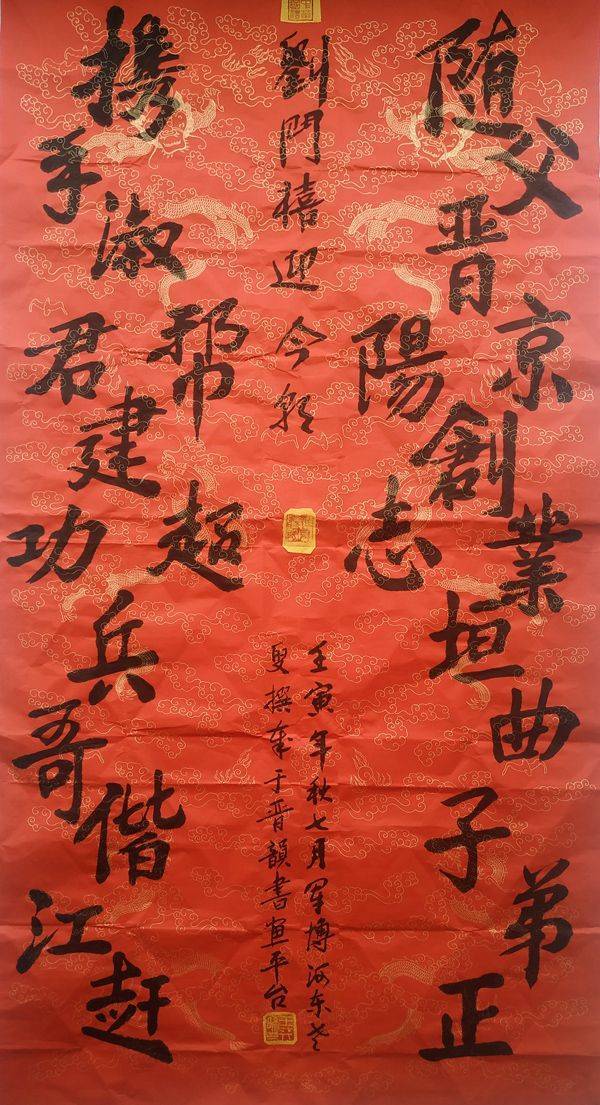 随父晋京創業垣曲子弟正
陽志
劉門禧迎今朝
壬寅年秋七月军博河东老
叟撰奉于晋韻書画平台
携手淑君建功兵哥偕江赶
帮超